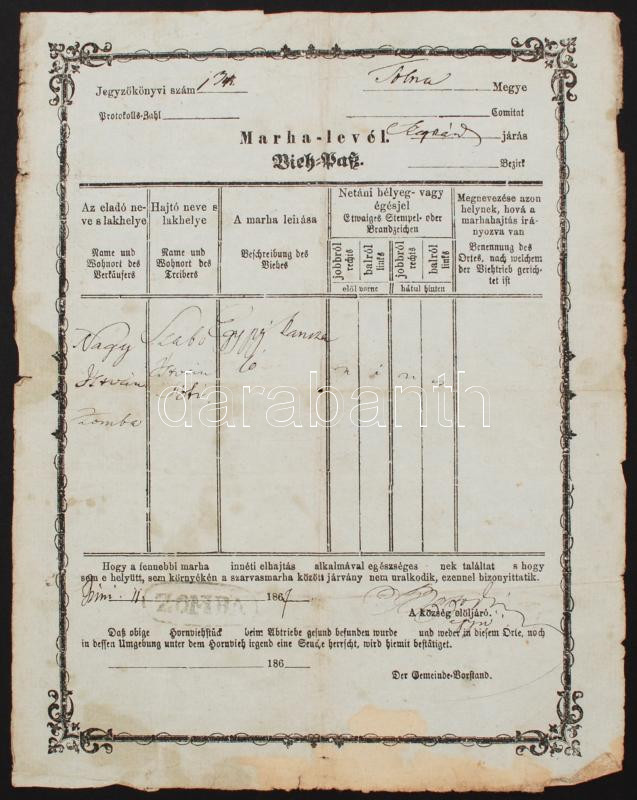 Jegyzőkönyvi szám
Tolna Megye
Protokolls-Zahl
Comitat
Marha-levél.
járás
Vieh-Paß.
Bezirk
Az eladó ne-
ve s lakhelye
Name und
Wohnort des
Verkäufers
Hajtó neve s
lakhelye
Name und
Wohnort des
Treibers
A marha leirása
Beschreibung des
Viehes
Netáni bélyeg- vagy
égésjel
Etwaiges Stempel- oder
Brandzeichen
jobbról
rechts
balról
links
jobbról
rechts
balról
links
elől vorne
hátul hinten
Megnevezése azon
helynek, hová a
marhahajtás irá-
nyozva van
Benennung des
Ortes, nach welchem
der Viehtrieb gerich-
tet ist
Nagy
István
Zomba
Szabó
István
Egy
ló
nincs
darabanth
Hogy a fennebbi marha innéti elhajtás alkalmával egészséges nek találtat s hogy
sem e helyütt, sem környékén a szarvasmarha között járvány nem uralkodik, ezennel bizonyittatik.
ZOMBA
1867
A község elöljáró.
Daß obige Hornviehstück beim Abtriebe gesund befunden wurde und weder in diesem Orte, noch
in dessen Umgebung unter dem Hornvieh irgend eine Seuche herrscht, wird hiemit bestätiget.
186
Der Gemeinde-Vorstand.